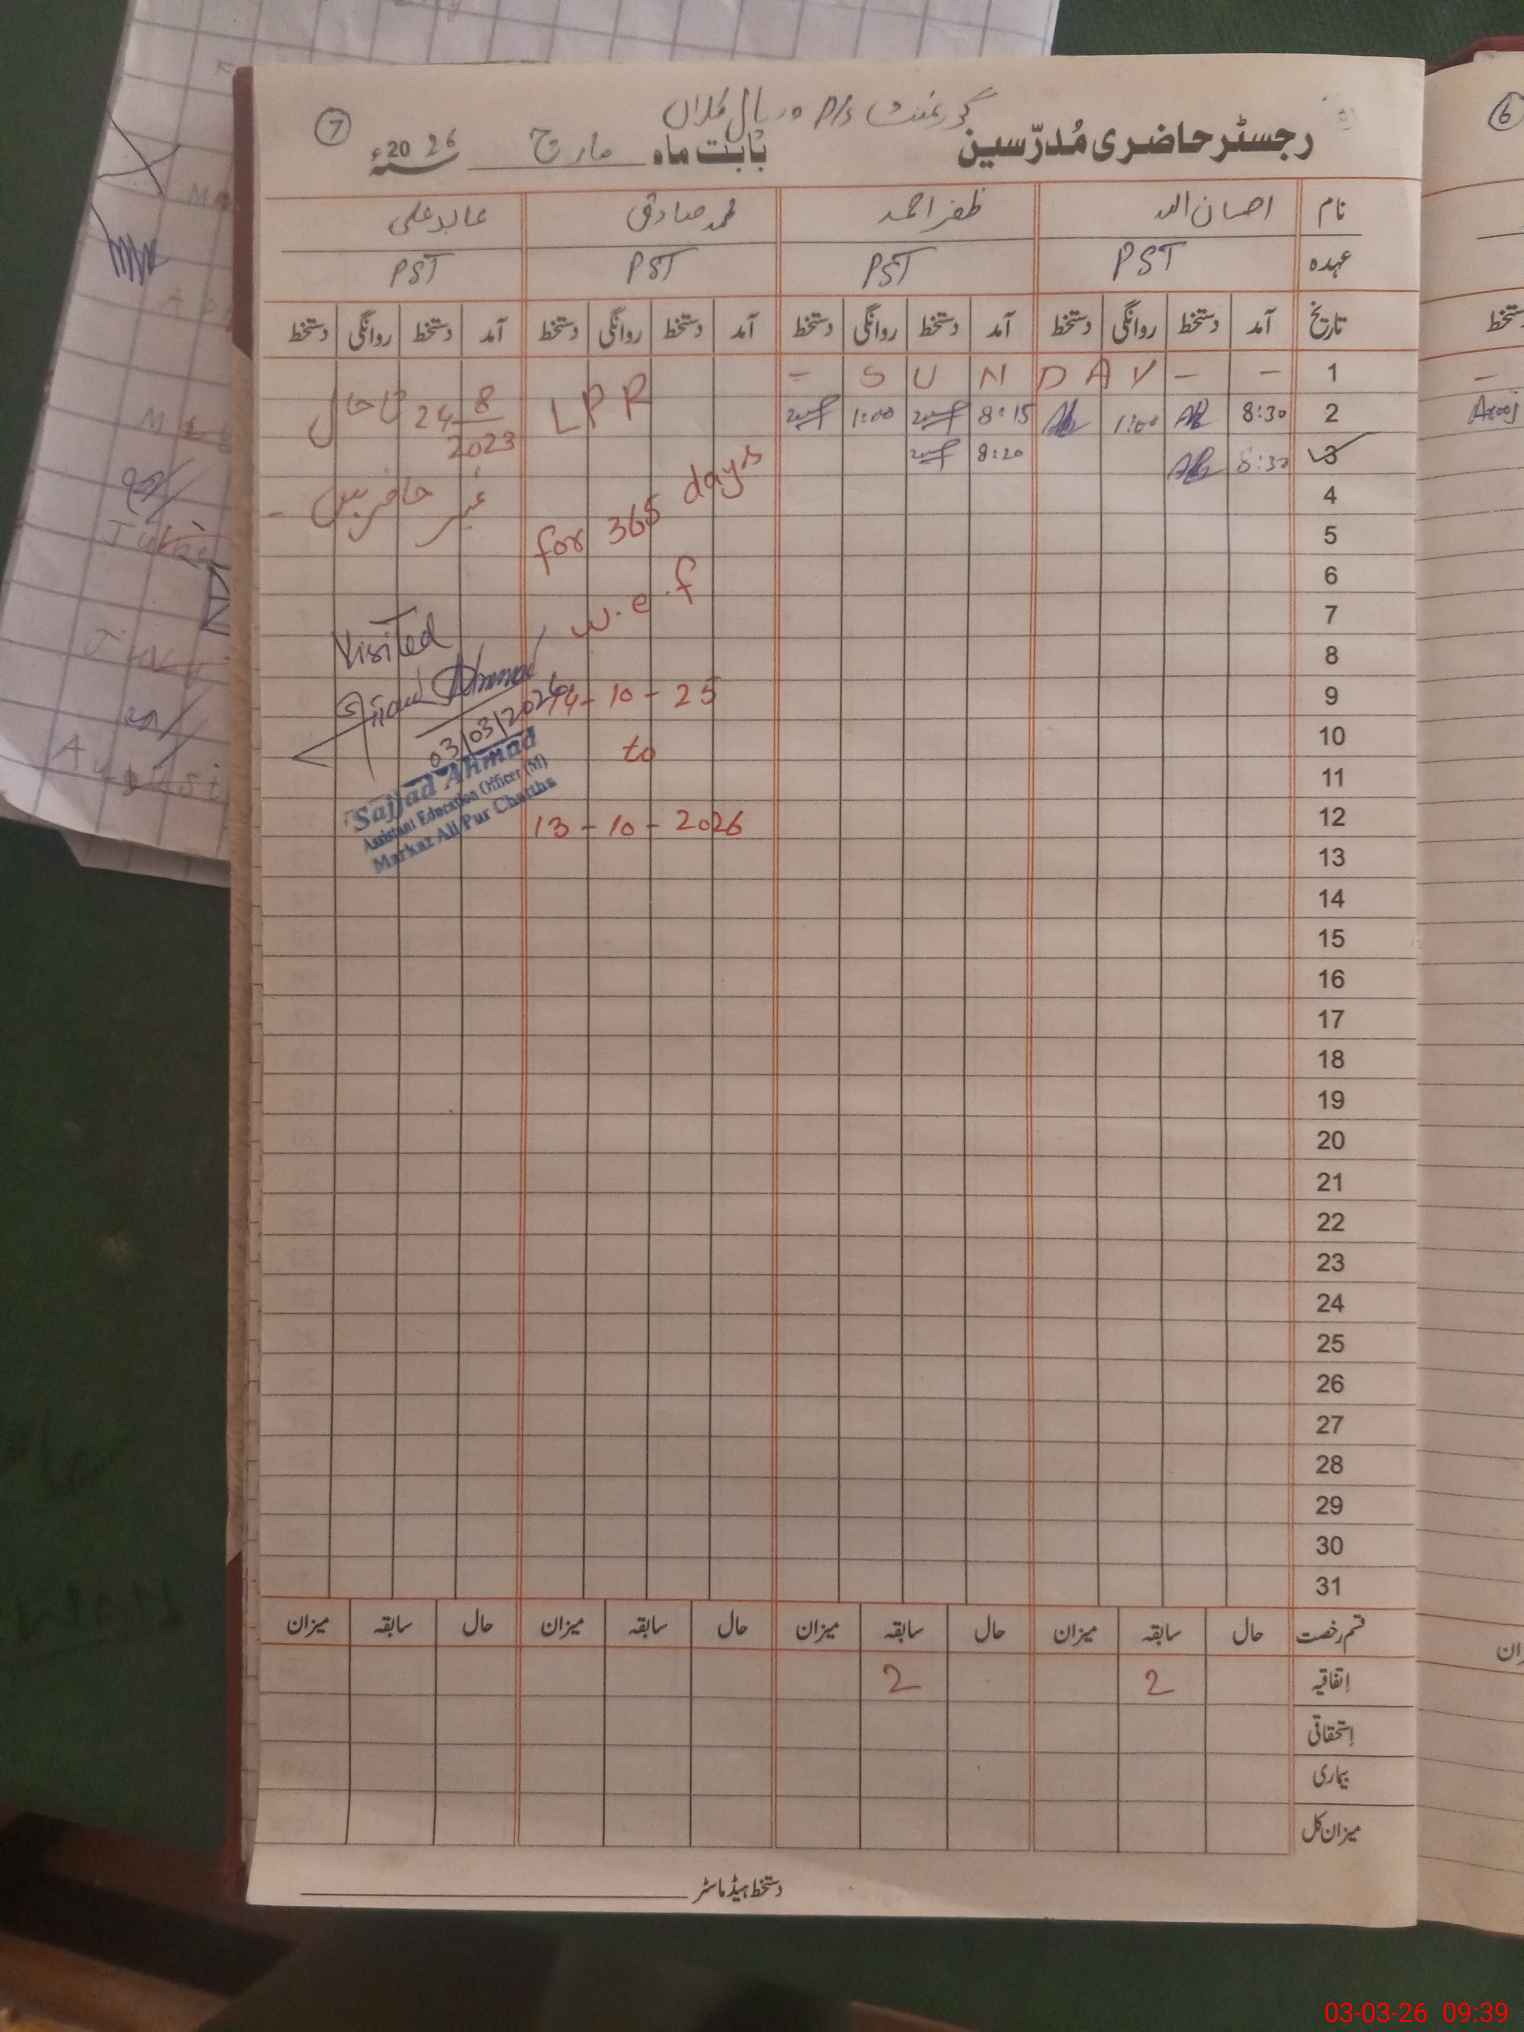 7
گورنمنٹ P/S وریال کلاں
رجسٹر حاضری مُدرّسین بابت ماہ مارچ سنہ 2026ء
نام احسان اللہ ظفر احمد محمد صادق عابد علی
عہدہ PST PST PST PST
تاریخ آمد دستخط روانگی دستخط آمد دستخط روانگی دستخط آمد دستخط روانگی دستخط آمد دستخط روانگی دستخط
1 - SUNDAY - -
2 8:30 1:00 8:15 1:00
3 8:30 8:20
4
5
6
7
8
9
10
11
12
13
14
15
16
17
18
19
20
21
22
23
24
25
26
27
28
29
30
31
LPR
for 365 days
w.e.f
14-10-25
to
13-10-2026
24 8
2023
تا حال
غیر حاضر ہیں -
Visited
Sajjad Ahmad
03/03/2026
Sajjad Ahmad
Assistant Education Officer (M)
Markaz Ali Pur Chattha
قسم رخصت حال سابقہ میزان حال سابقہ میزان حال سابقہ میزان حال سابقہ میزان
اتفاقیہ 2 2
استحقاقی
بیماری
میزان کل
دستخط ہیڈ ماسٹر
6
دستخط
-
Arooj
August
03-03-26 09:39